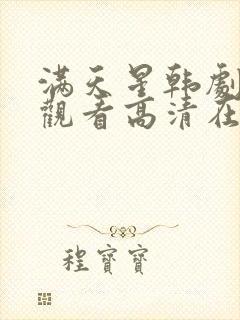 满天星韩劇
觀看高清在
程寶寶